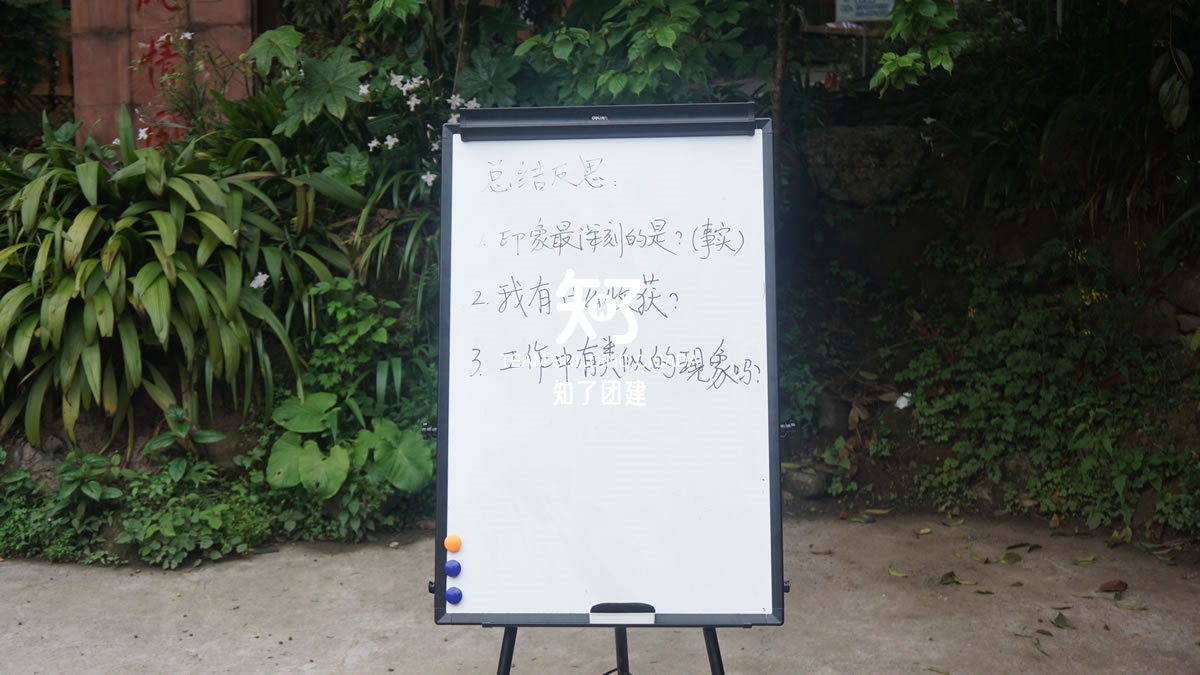 悟
deli
总结反思:
1. 印象最深刻的是?(事实)
2. 我有什么收获?
3. 工作中有类似的现象吗?
知了
知了团建